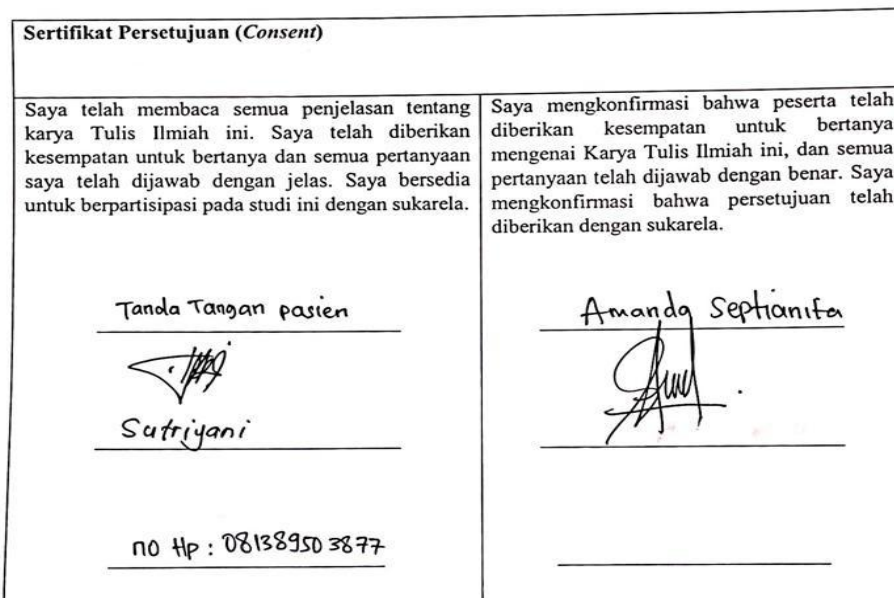 Sertifikat Persetujuan (Consent)
Saya telah membaca semua penjelasan tentang
karya Tulis Ilmiah ini. Saya telah diberikan
kesempatan untuk bertanya dan semua pertanyaan
saya telah dijawab dengan jelas. Saya bersedia
untuk berpartisipasi pada studi ini dengan sukarela.
Tanda Tangan pasien
Sutriyani
no Hp : 081389503877
Saya mengkonfirmasi bahwa peserta telah
diberikan kesempatan untuk bertanya
mengenai Karya Tulis Ilmiah ini, dan semua
pertanyaan telah dijawab dengan benar. Saya
mengkonfirmasi bahwa persetujuan telah
diberikan dengan sukarela.
Amanda Septianita